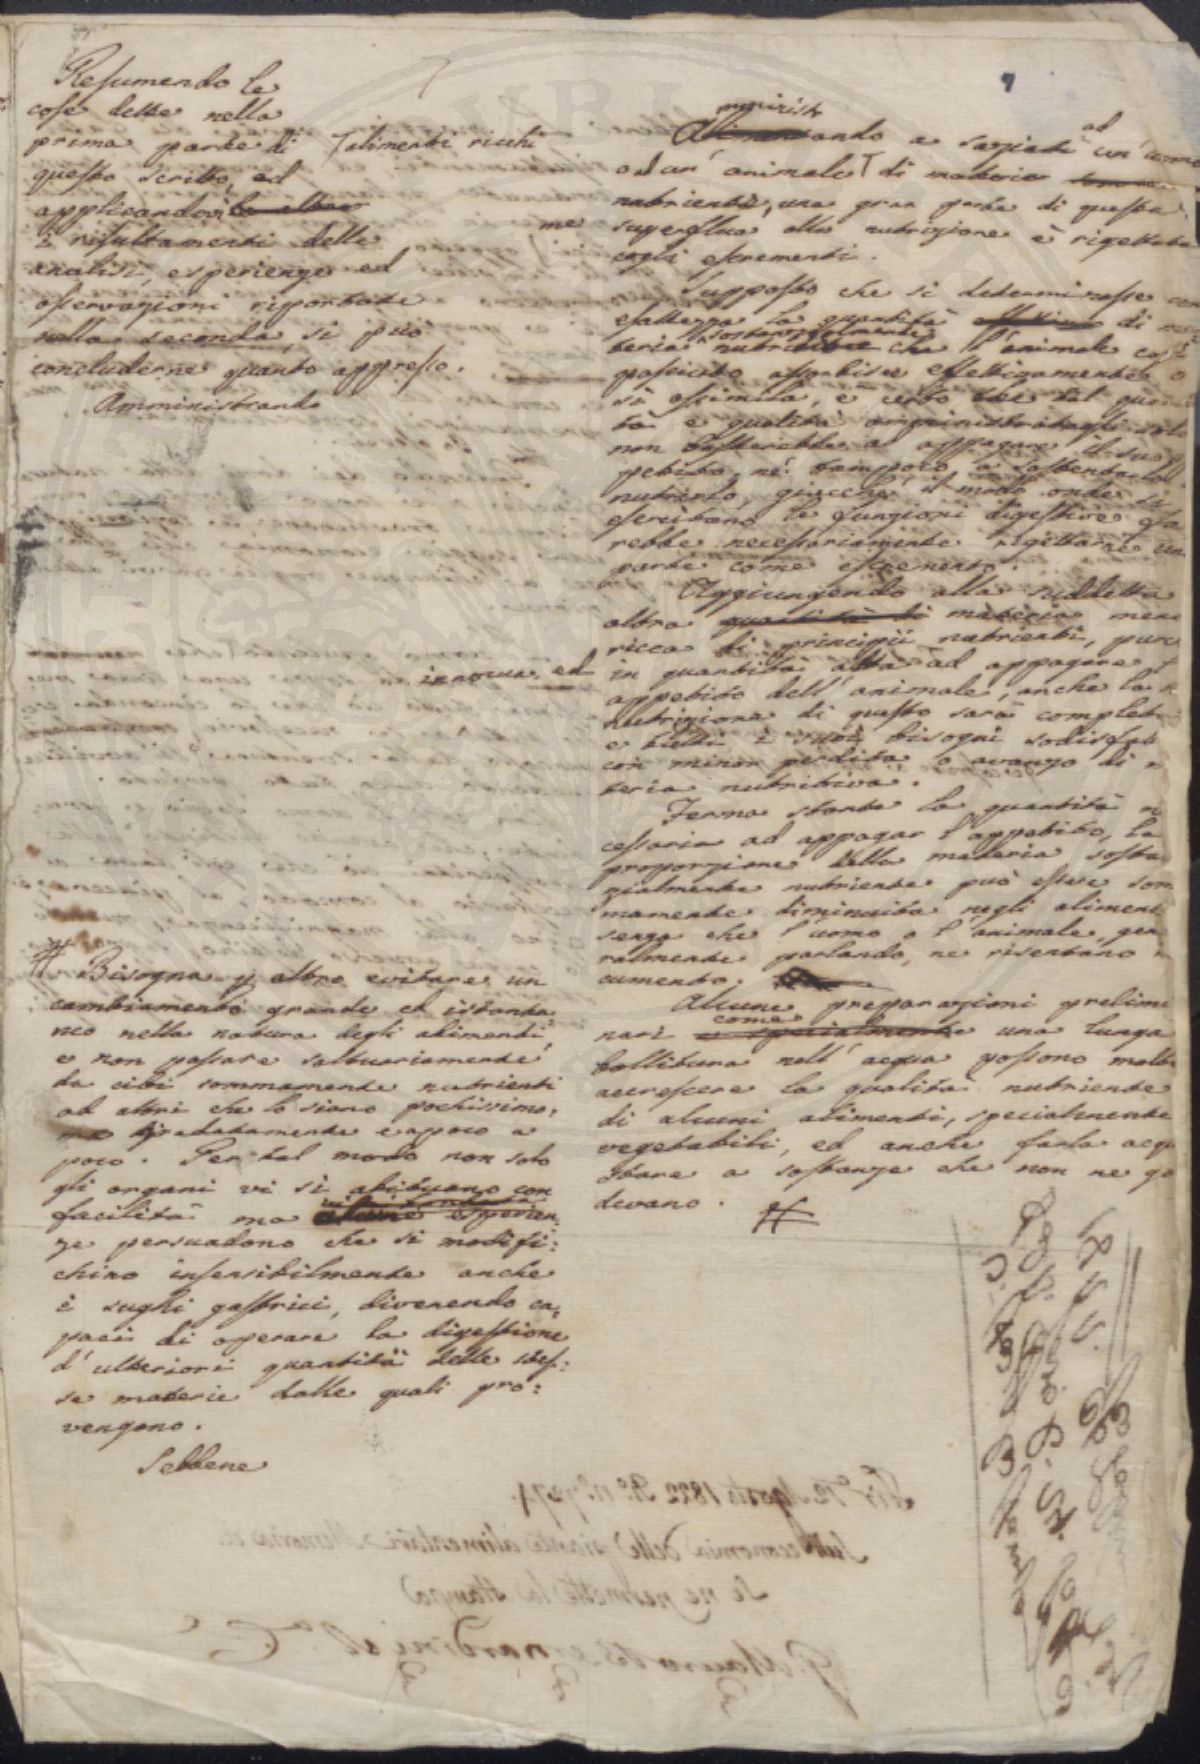 Resumendo le
cose dette nella
prima parte di
questo scritto, ed
applicandovi le altre
i risultamenti delle
analisi, esperienze ed
osservazioni riportate
nella seconda, si può
concluderne quanto appresso.
Amministrando
⌈alimenti ricchi
me
innocua, ed
# Bisogna p altro evitare un
cambiamento grande ed istanta
neo nella natura degli alimenti,
e non passare saltuariamente
da cibi sommamente nutrienti
ad altri che lo siano pochissimo,
ma gradatamente e a poco a
poco. Per tal modo non solo
gli organi vi si abituano con
facilità ma alcune esperien:
ze persuadono che si modifi:
chino insensibilmente anche
i sughi gastrici, divenendo ca:
paci di operare la digestione
d'ulteriori quantità delle stes:
se materie dalle quali pro:
vengono.
Sebbene
7
ministr
ando a sazietà ad un uomo
od un' animale⌈ di materia
nutriente, una gran parte di questa
superflua alla nutrizione è rigettata
cogli escrementi.
Supposto che si determinasse con
esattezza la quantità di ma
sostanzialmente
teria nutritiva che l'animale così
pasciuto assorbisce effettivamente e
si assimila, è certo che tal quan
tà e qualità amministratagli sola
non basterebbe ad appagare il suo ap
petito, nè tampoco a sostentarlo
nutrirlo, giacchè il modo onde si
esercitano le funzioni digestive fa
rebbe necessariamente rigettarne una
parte come escremento.
Aggiungendo alla suddetta
altra quantità di materia meno
ricca di principii nutrienti, pure
in quantità atta ad appagare l'
appetito dell'animale, anche la
nutrizione di questo sarà completa
e tutti i suoi bisogni sodisfatti
con minor perdita o avanzo di ma
teria nutritiva.
Ferma stante la quantità ne
cessaria ad appagar l'appetito, la
proporzione della materia sostan
zialmente nutriente può essere som
mamente diminuita negli alimenti
senza che l'uomo o l'animale, gene
ralmente parlando, ne risentano
cumento.
Alcune preparazioni prelimi
come
nari e specialmente una lunga
bollitura nell'acqua possono molto
accrescere la qualità nutriente
di alcuni alimenti, specialmente
vegetabili, ed anche farla acqui
stare a sostanze che non ne go
devano. #
12 Agosto 1822
Sull'economia delle piante alimentari Memoria
Se ne permette la stampa